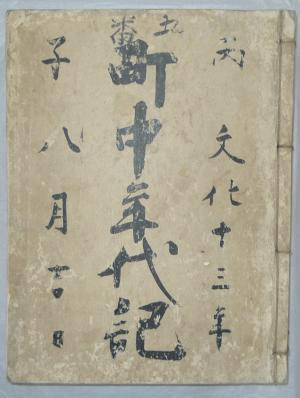 丙 文化十三年
番
町中年代記
子 八月吉日